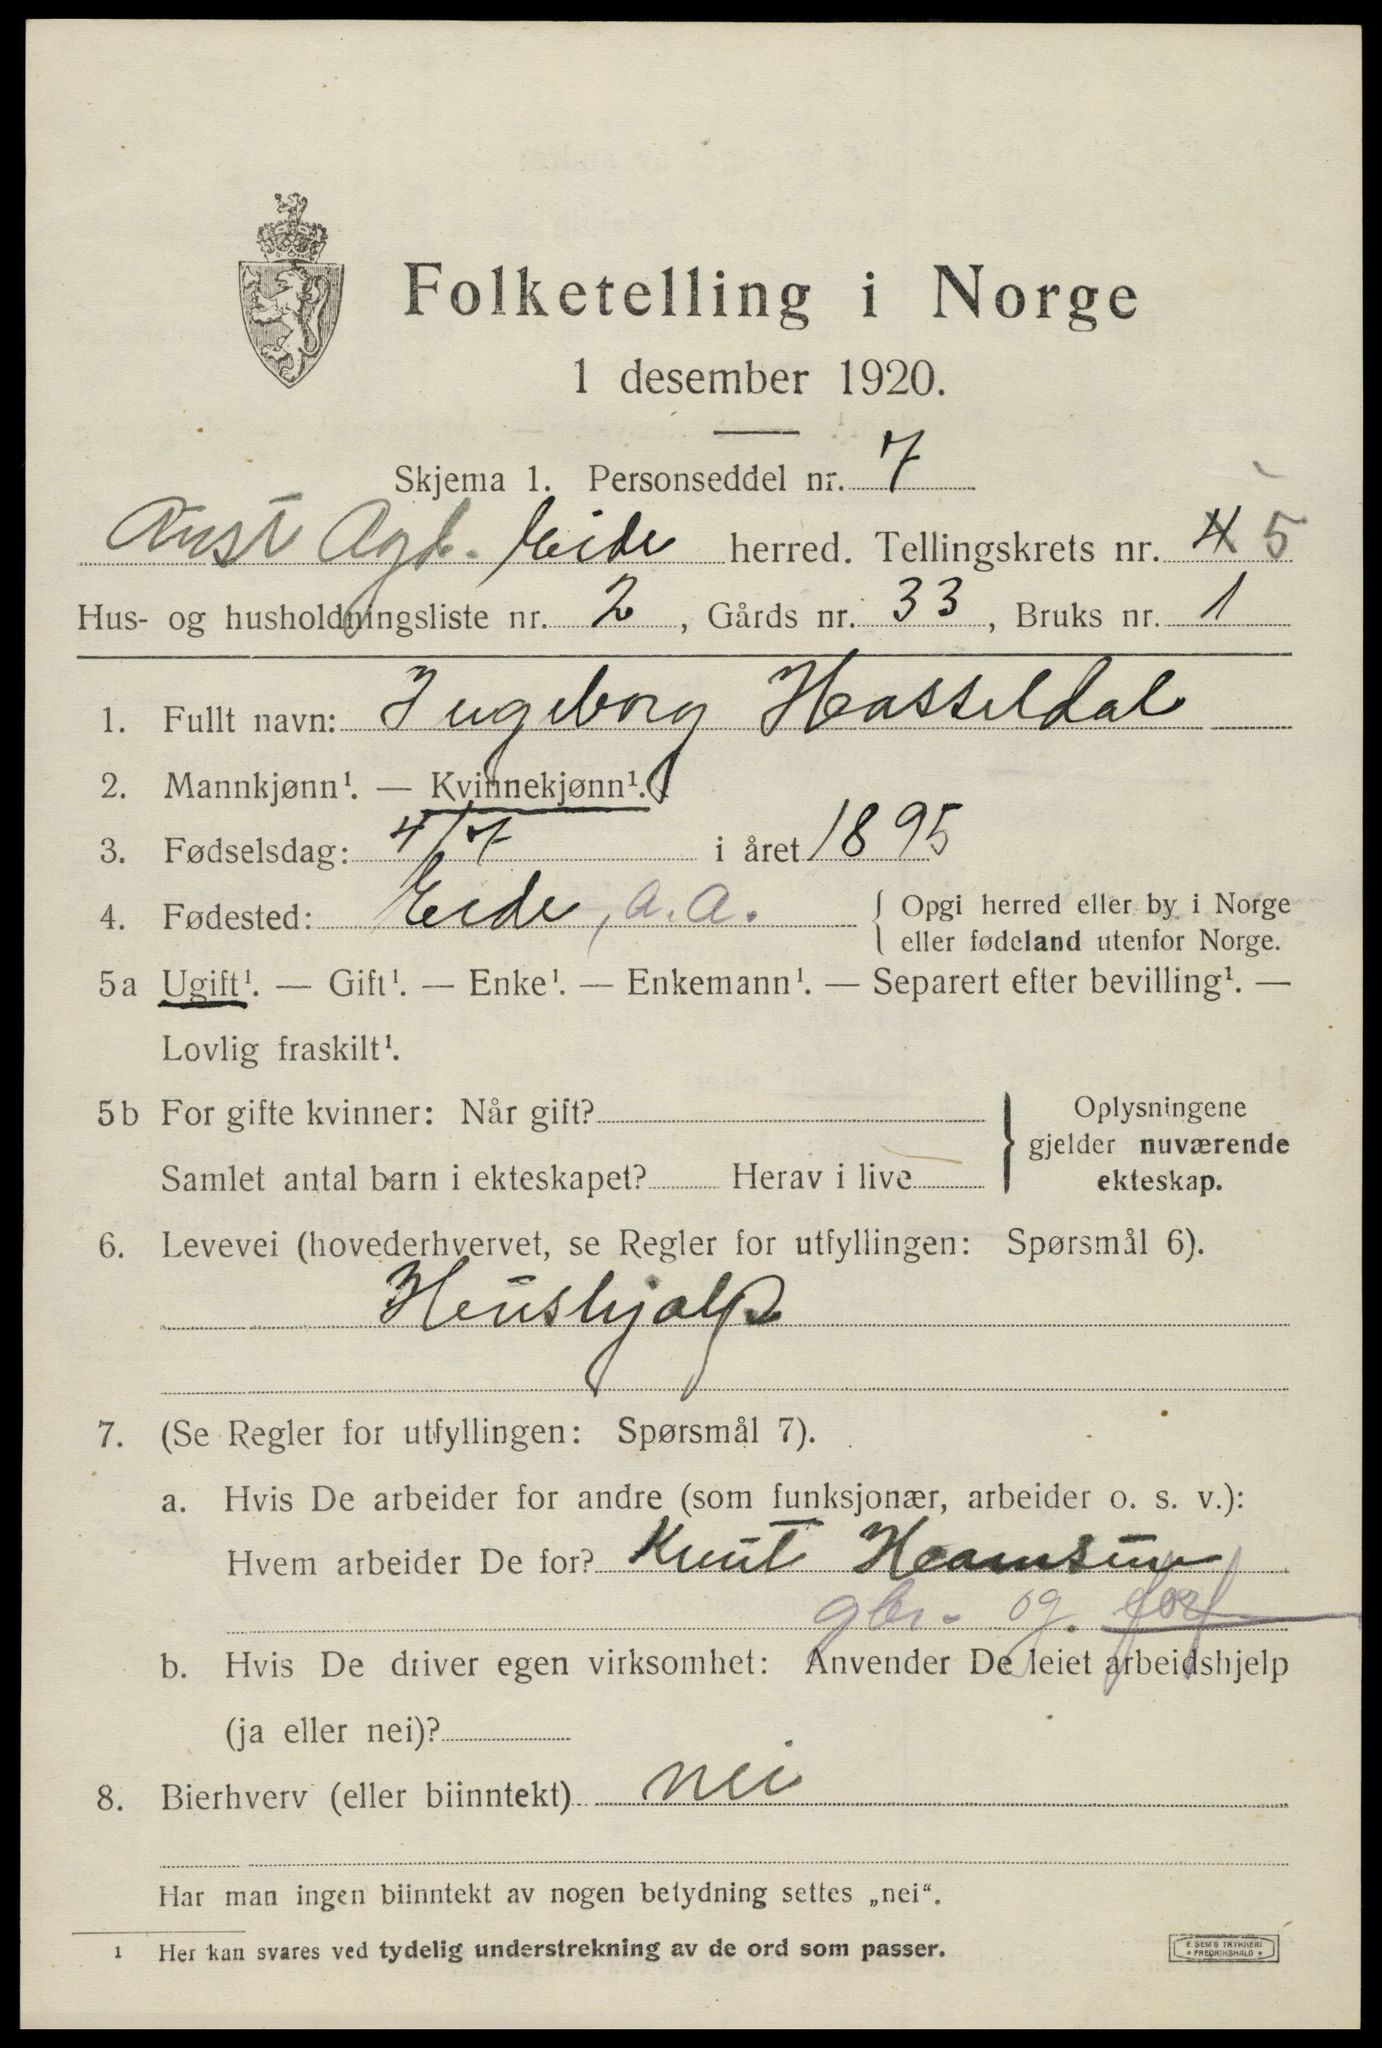 Folketelling i Norge
1 desember 1920.
Skjema 1. Personseddel nr. 7
Aust Agd. Eide herred. Tellingskrets nr. 4 5
Hus- og husholdningsliste nr. 2, Gårds nr. 33, Bruks nr. 1
1. Fullt navn: Ingeborg Hasseldal
2. Mannkjønn¹. — Kvinnekjønn¹.
3. Fødselsdag: 4/7 i året 1895
4. Fødested: Eide, A. A. { Opgi herred eller by i Norge
eller fødeland utenfor Norge.
5a Ugift¹. — Gift¹. — Enke¹. — Enkemann¹. — Separert efter bevilling¹. —
Lovlig fraskilt¹.
5b For gifte kvinner: Når gift? } Oplysningene
gjelder nuværende
Samlet antal barn i ekteskapet? Herav i live ekteskap.
6. Levevei (hovederhvervet, se Regler for utfyllingen: Spørsmål 6).
Hushjalp
7. (Se Regler for utfyllingen: Spørsmål 7).
a. Hvis De arbeider for andre (som funksjonær, arbeider o. s. v.):
Hvem arbeider De for? Knut Hamsun
gbr. og forf
b. Hvis De driver egen virksomhet: Anvender De leiet arbeidshjelp
(ja eller nei)?
8. Bierhverv (eller biinntekt) nei
Har man ingen biinntekt av nogen betydning settes „nei“.
¹ Her kan svares ved tydelig understrekning av de ord som passer.
E. SEM'S TRYKKERI
* FREDRIKSHALD *